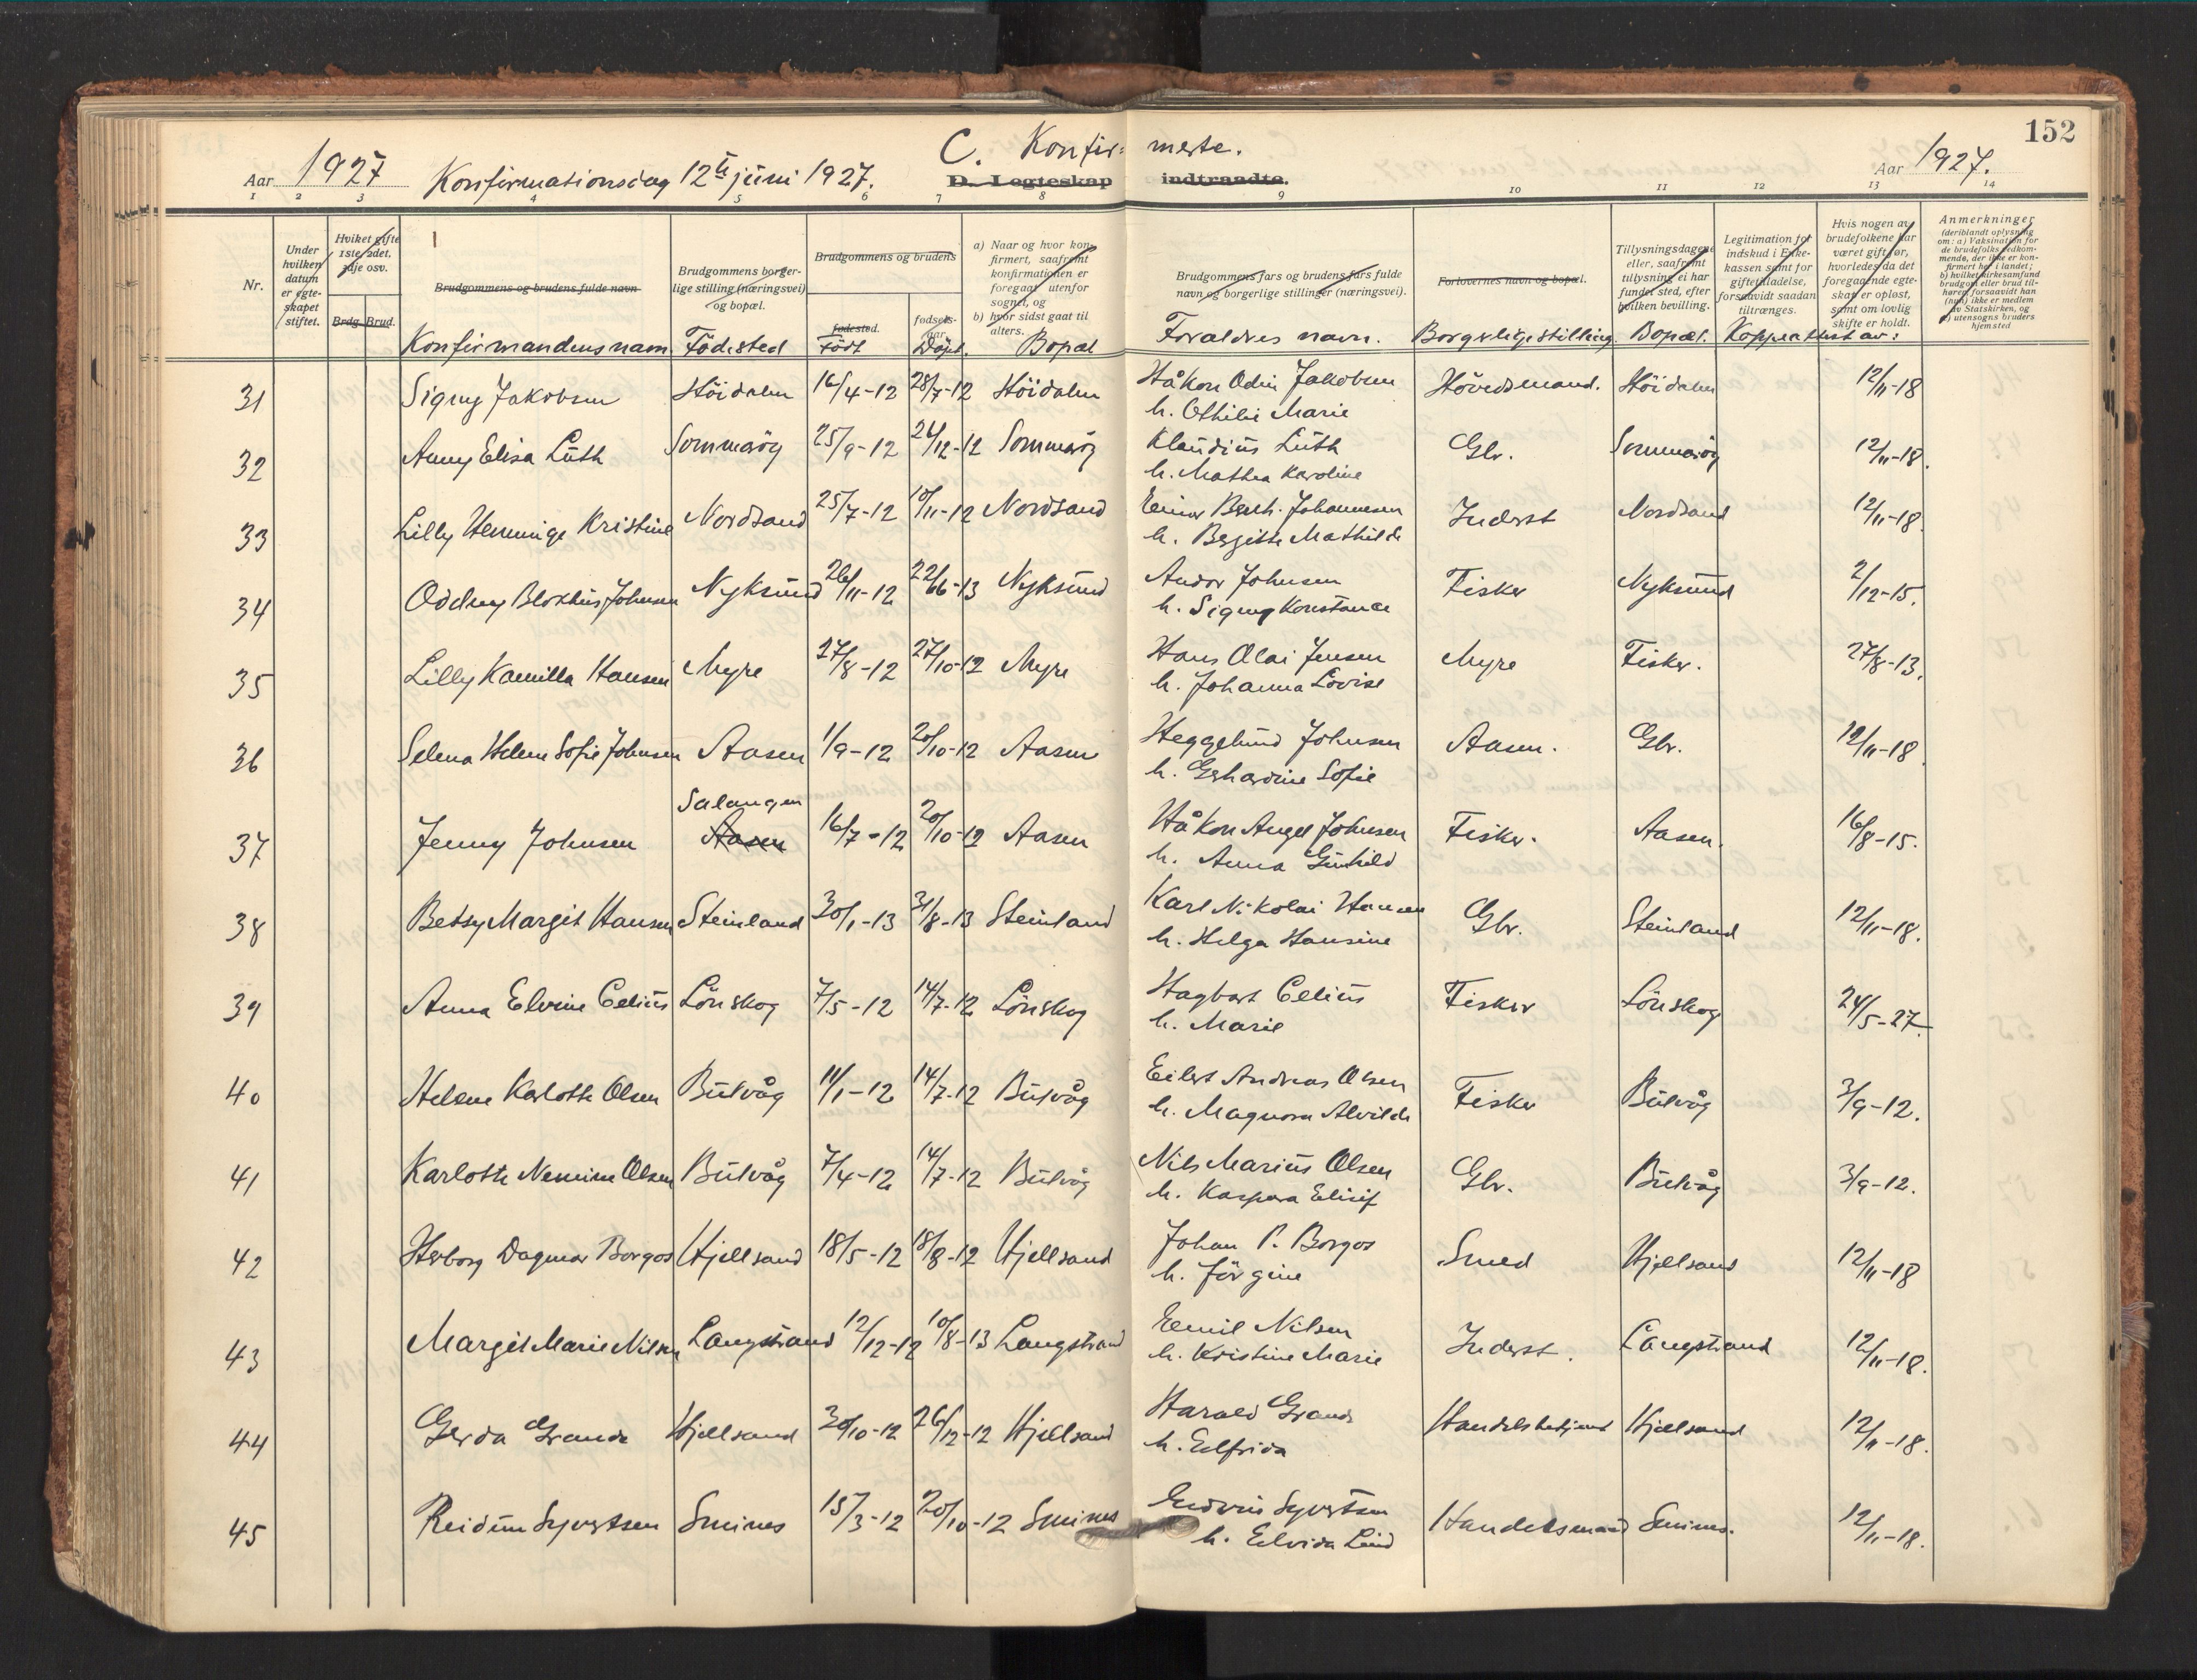 152
C. Konfir= merte.
Aar 1927 Konfirmationsdag 12te juni 1927. D. Legteskap indtraadte. Aar 1927.
1 2 3 4 5 6 7 8 9 10 11 12 13 14
Nr.
Under hvilken datum er egteskapet stiftet.
Hvilket gifte 1ste, 2det, 3dje osv.
Brdg. Brud.
Brudgommens og brudens fulde navn
Brudgommens borgerlige stilling (næringsvei) og bopæl.
Brudgommens og brudens
fødested.
fødselsaar.
a) Naar og hvor konfirmert, saafremt konfirmationen er foregaat utenfor sognet, og
b) hvor sidst gaat til alters.
Brudgommens fars og brudens fars fulde navn og borgerlige stillinger (næringsvei).
Forlovernes navn og bopæl.
Tillysningsdagene eller, saafremt tillysning ei har fundet sted, efter hvilken bevilling.
Legitimation for indskud i Enkekassen samt for giftetilladelse, forsaavidt saadan tiltrænges.
Hvis nogen av brudefolkene har været gift før, hvorledes da det foregaaende egteskap er opløst, samt om lovlig skifte er holdt.
Anmerkninger
Konfirmandens navn Födested Födt Döpt. Bopæl Forældres navn. Borgerlige stilling Bopæl. Koppeattest av:
31 Signy Jakobsen Höidalen 16/4-12 28/7-12 Höidalen Håkon Odin Jakobsen Hövedsmand. Höidalen 12/11-18
h. Othilie Marie
32 Anny Elisa Lüth Sommaröy 25/9-12 26/12-12 Sommaröy Klaudius Lüth Gbr. Sommaröy 12/11-18.
h. Mathea Karoline
33 Lilly Henninge Kristine Nordsand 25/7-12 10/11-12 Nordsand Einar Bernh. Johannesen Inderst Nordsand 12/11-18
h. Bergitte Mathilde
34 Oddny Blokhus Johnsen Nyksund 26/11-12 22/6-13 Nyksund Andor Johnsen Fisker Nyksund 2/12-15.
h. Signy Konstance
35 Lilly Kamilla Hansen Myre 27/8-12 27/10-12 Myre Hans Olai Jensen Myre Fisker. 27/8-13.
h. Johanna Lovise
36 Selena Helene Sofie Johnsen Aasen 1/9-12 20/10-12 Aasen Heggelund Johnsen Aasen. Gbr. 12/11-18
h. Gerhardine Sofie
Salangen
37 Jenny Johnsen Aasen 16/7-12 20/10-12 Aasen Håkon Angel Johnsen Fisker. Aasen. 16/8-15.
h. Anna Gunhild
38 Betsy Margit Hansen Steinland 30/1-13 31/8-13 Steinland Karl Nikolai Hansen Gbr. Steinland 12/11-18.
h. Helga Hansine
39 Anna Elvine Celius Lönskog 7/5-12 14/7-12 Lönskog Hagbart Celius Fisker Lönskog 24/5-27.
h. Marie
40 Helene Karlotte Olsen Butvåg 11/1-12 14/7-12 Butvåg Eilert Andreas Olsen Fisker Butvåg 3/9-12.
h. Magnora Alvilde
41 Karlotte Nennine Olsen Butvåg 7/4-12 14/7-12 Butvåg Nils Marius Olsen Gbr. Butvåg 3/9-12.
h. Kaspara Elisif
42 Herborg Dagmar Borgos Hjellsand 18/5-12 18/8-12 Hjellsand Johan P. Borgos Smed Hjellsand 12/11-18
h. Jörgine
43 Margit Marie Nilsen Langstrand 12/12-12 10/8-13 Langstrand Emil Nilsen Inderst. Langstrand 12/11-18.
h. Kristine Marie
44 Gerda Grande Hjellsand 30/10-12 26/12-12 Hjellsand Harald Grande Handelsbetjent Hjellsand 12/11-18.
h. Elfrida
45 Reidun Syvertsen Smines 15/3-12 20/10-12 Smines Endvin Syvertsen Handelsmand Smines. 12/11-18.
h. Elvida Lind